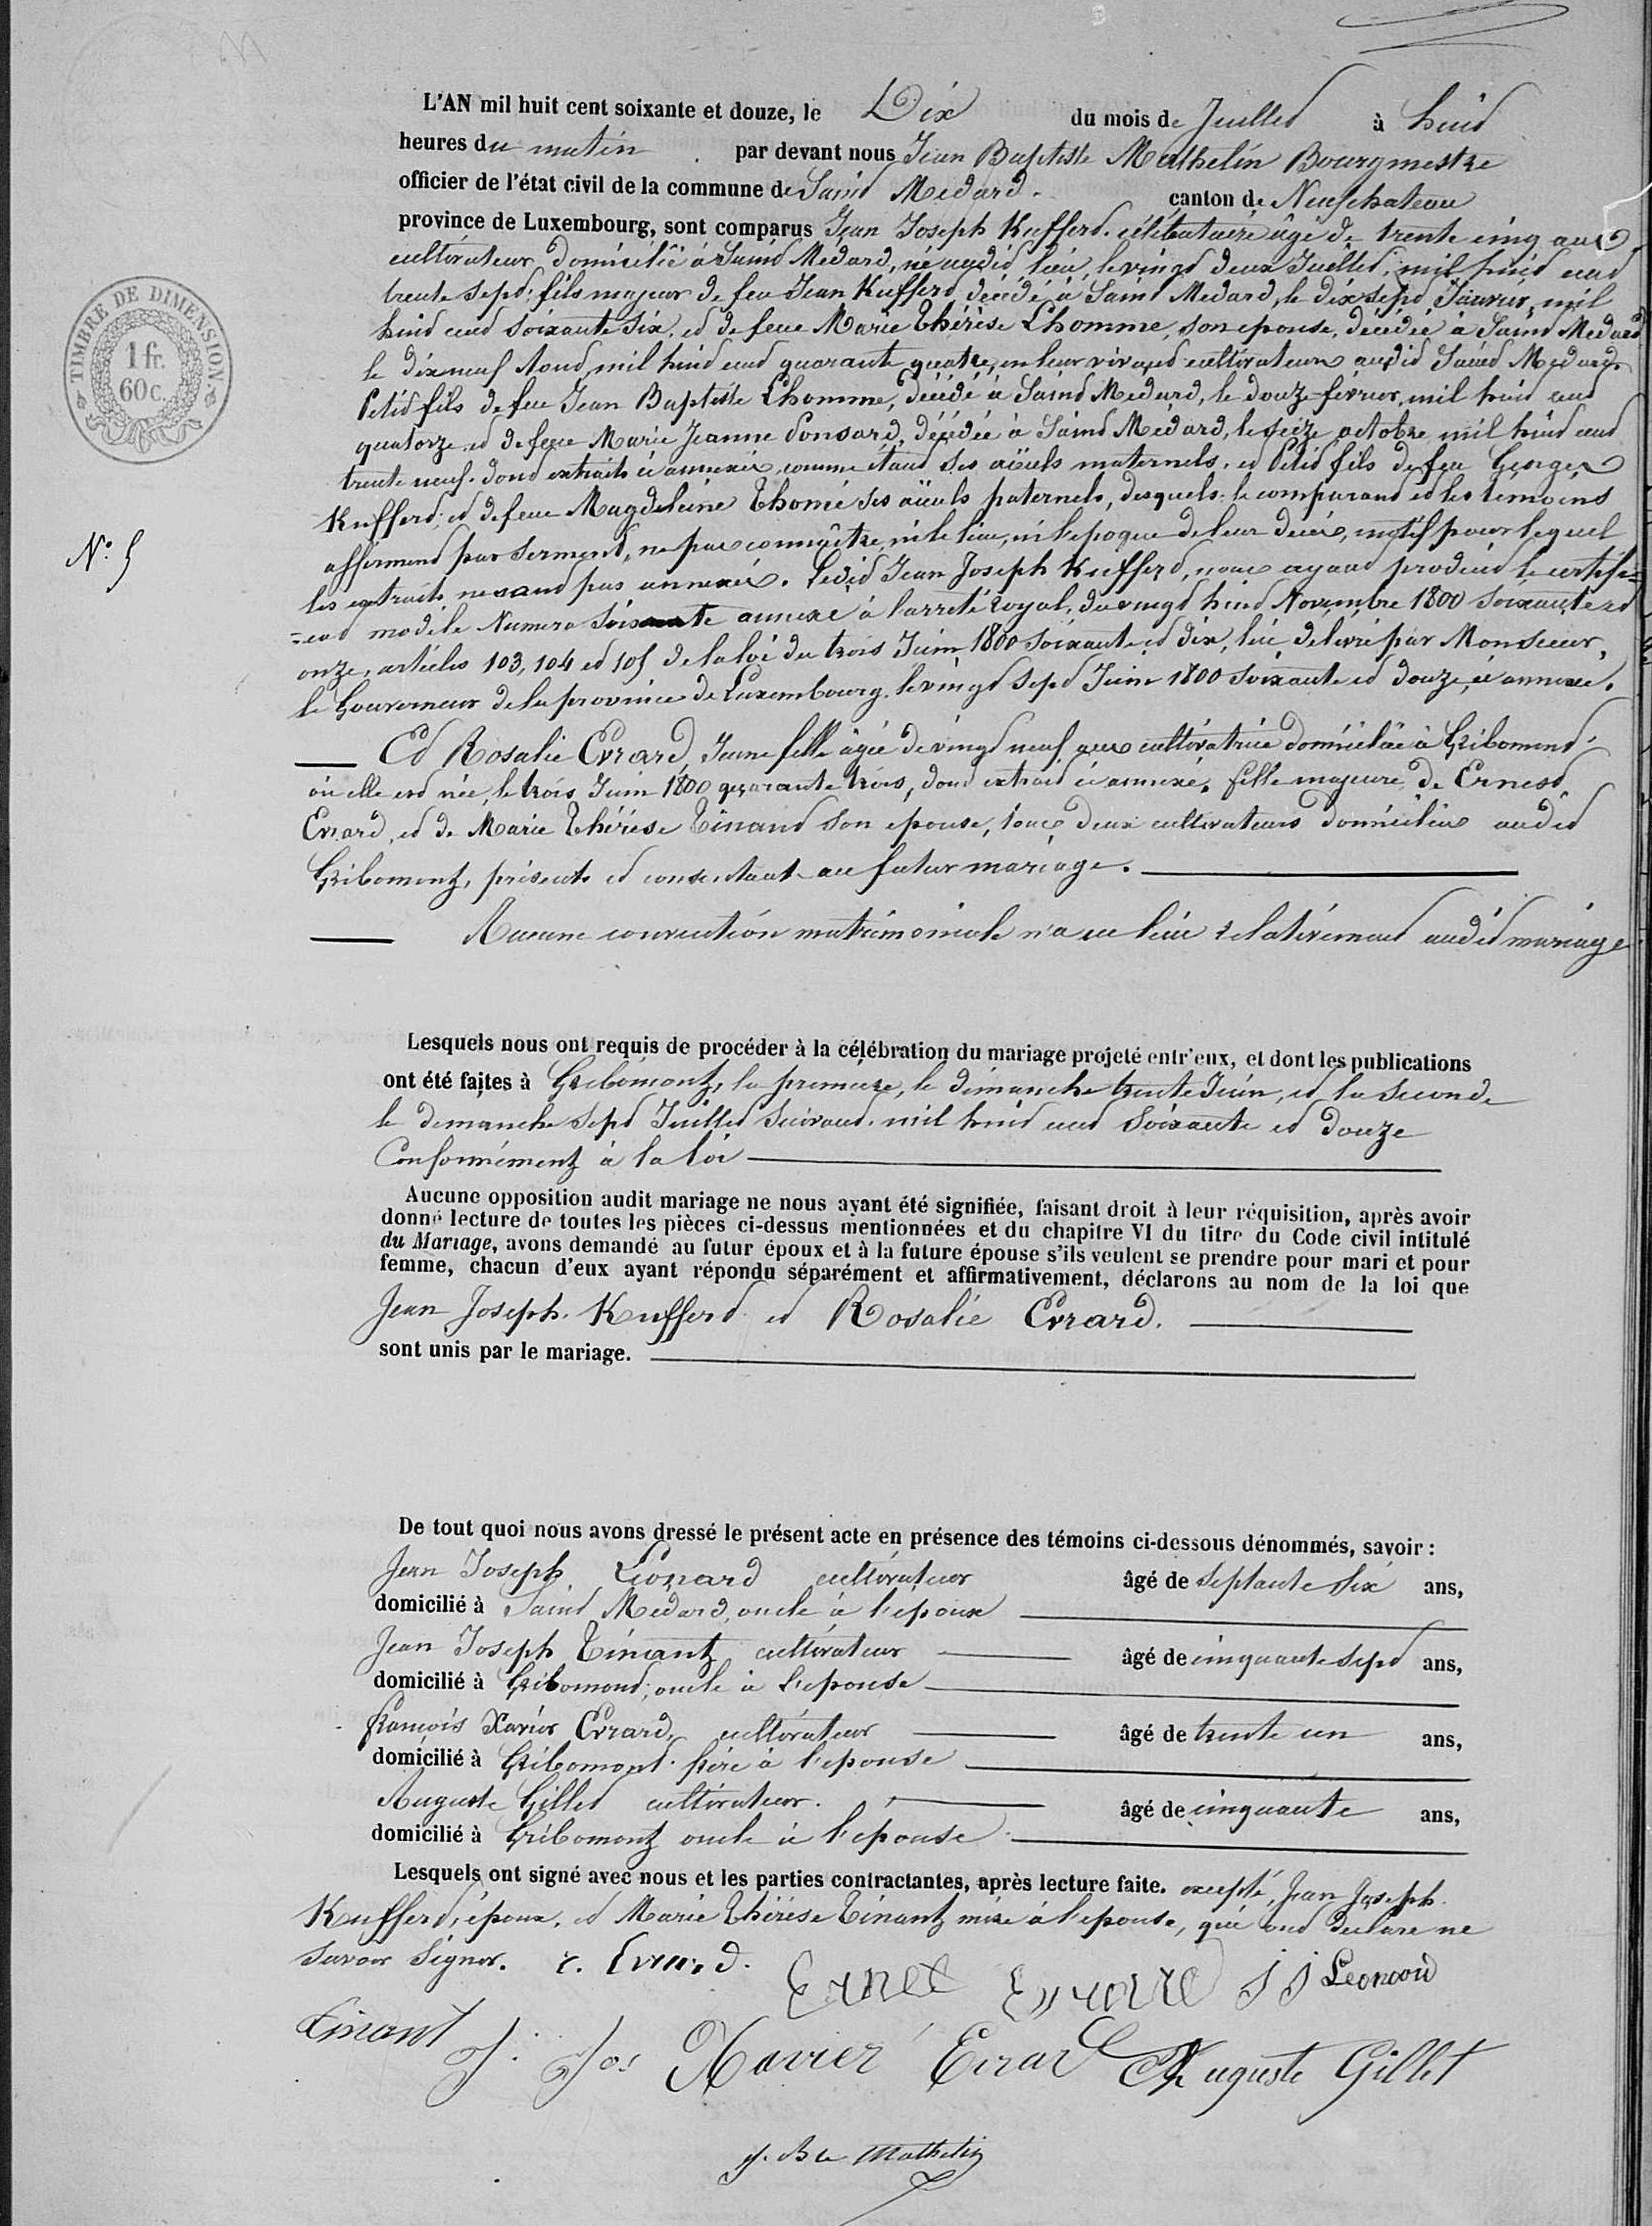 L'AN mil huit cent soixante et douze, le Dix du mois de Juillet à huit
heures du matin par devant nous Jean Baptiste Mathelin Bourgmestre
officier de l'état civil de la commune de Saint Médard. canton de Neufchateau
province de Luxembourg, sont comparus Jean Joseph Kuffert. célibataire âgé de trente cinq ans
cultivateur domicilié à Saint Médard, né audit lieu, le vingt deux Juillet, mil huit cent
trente sept; fils majeur de feu Jean Kuffert décédé à Saint Medard, le dix sept Janvier, mil
huit cent soixante six, et de feue Marie Thérèse Lhomme, son epouse, décédée à Saint Medard
le dix neuf Aout mil huit cent quarante quatre, en leur vivant cultivateurs audit Saint Medard.
Petit fils de feu Jean Baptiste Lhomme, décédé à Saint Medard, le douze février, mil huit cent
quatorze et de feue Marie Jeanne Ponsard, décédée à Saint Médard, le seize octobre mil huit cent
trente neuf. dont extraits ci annexés, comme étant ses aïeuls maternels. et Petit fils de feu Georges
Kuffert; et de feue Magdeleine Thomé ses aïeuls paternels, desquels le comparant et les témoins
affirment par serment, ne pas connaître, ni le lieu, ni l'epoque de leur décès, motif pour lequel
les extraits ne sont pas annexés. Ledit Jean Joseph Kuffert, nous ayant produit le certifi=
=cat modèle Numero soixante annexé à l'arrêté royal, du vingt huit Novembre 1800 soixante et
onze, articles 103, 104 et 105 de la loi du trois Juin 1800 soixante et dix, lui délivré par Monsieur,
le Gouverneur de la province de Luxembourg. le vingt sept Juin 1800 soixante et douze, ci annexé.
Et Rosalie Evrard, Jeune fille âgée de vingt neuf ans cultivatrice domiciliée à Gribomont
où elle est née, le trois Juin 1800 quarante trois, dont extrait ci annexé, fille majeure de Ernest
Evrard, et de Marie Thérèse Tinant son epouse, tous deux cultivateurs domiciliés audit
Gribomont, présents et consentant au futur mariage.
Aucune convention matrimoniale n'a eu lieu relativement audit mariage
N° 5
TIMBRE DE DIMENSION.
1 fr.
60 c.
Lesquels nous ont requis de procéder à la célébration du mariage projeté entr'eux, et dont les publications
ont été faites à Gribomont, la premiere, le dimanche trente Juin, et la seconde
le demanche sept Juillet suivant. mil huit cent soixante et douze
Conformément à la loi
Aucune opposition audit mariage ne nous ayant été signifiée, faisant droit à leur réquisition, après avoir
donné lecture de toutes les pièces ci-dessus mentionnées et du chapitre VI du titre du Code civil intitulé
du Mariage, avons demandé au futur époux et à la future épouse s'ils veulent se prendre pour mari et pour
femme, chacun d'eux ayant répondu séparément et affirmativement, déclarons au nom de la loi que
Jean Joseph. Kuffert et Rosalie Evrard.
sont unis par le mariage.
De tout quoi nous avons dressé le présent acte en présence des témoins ci-dessous dénommés, savoir :
Jean Joseph Léonard cultivateur âgé de septante six ans,
domicilié à Saint Médard, oncle à l'epoux
Jean Joseph Tinant cultivateur âgé de cinquante sept ans,
domicilié à Gribomont, oncle à l'epouse
François Xavier Evrard, cultivateur âgé de trente un ans,
domicilié à Gribomont. frère à l'epouse
Auguste Gillet cultivateur. âgé de cinquante ans,
domicilié à Gribomont oncle à l'épouse
Lesquels ont signé avec nous et les parties contractantes, après lecture faite. excepté, Jean Joseph
Kuffert, époux, et Marie Thérèse Tinant mère à l'epouse, qui ont déclaré ne
savoir signer. r. Evrard. Ernet Evrard J J Leonard
Tinant J. Jos Xavier Evrard Auguste Gillet
J. Bte Mathelin